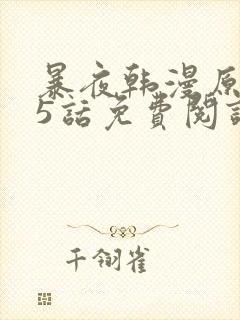 暴夜韩漫原
5話免費閱讀
千翎雀